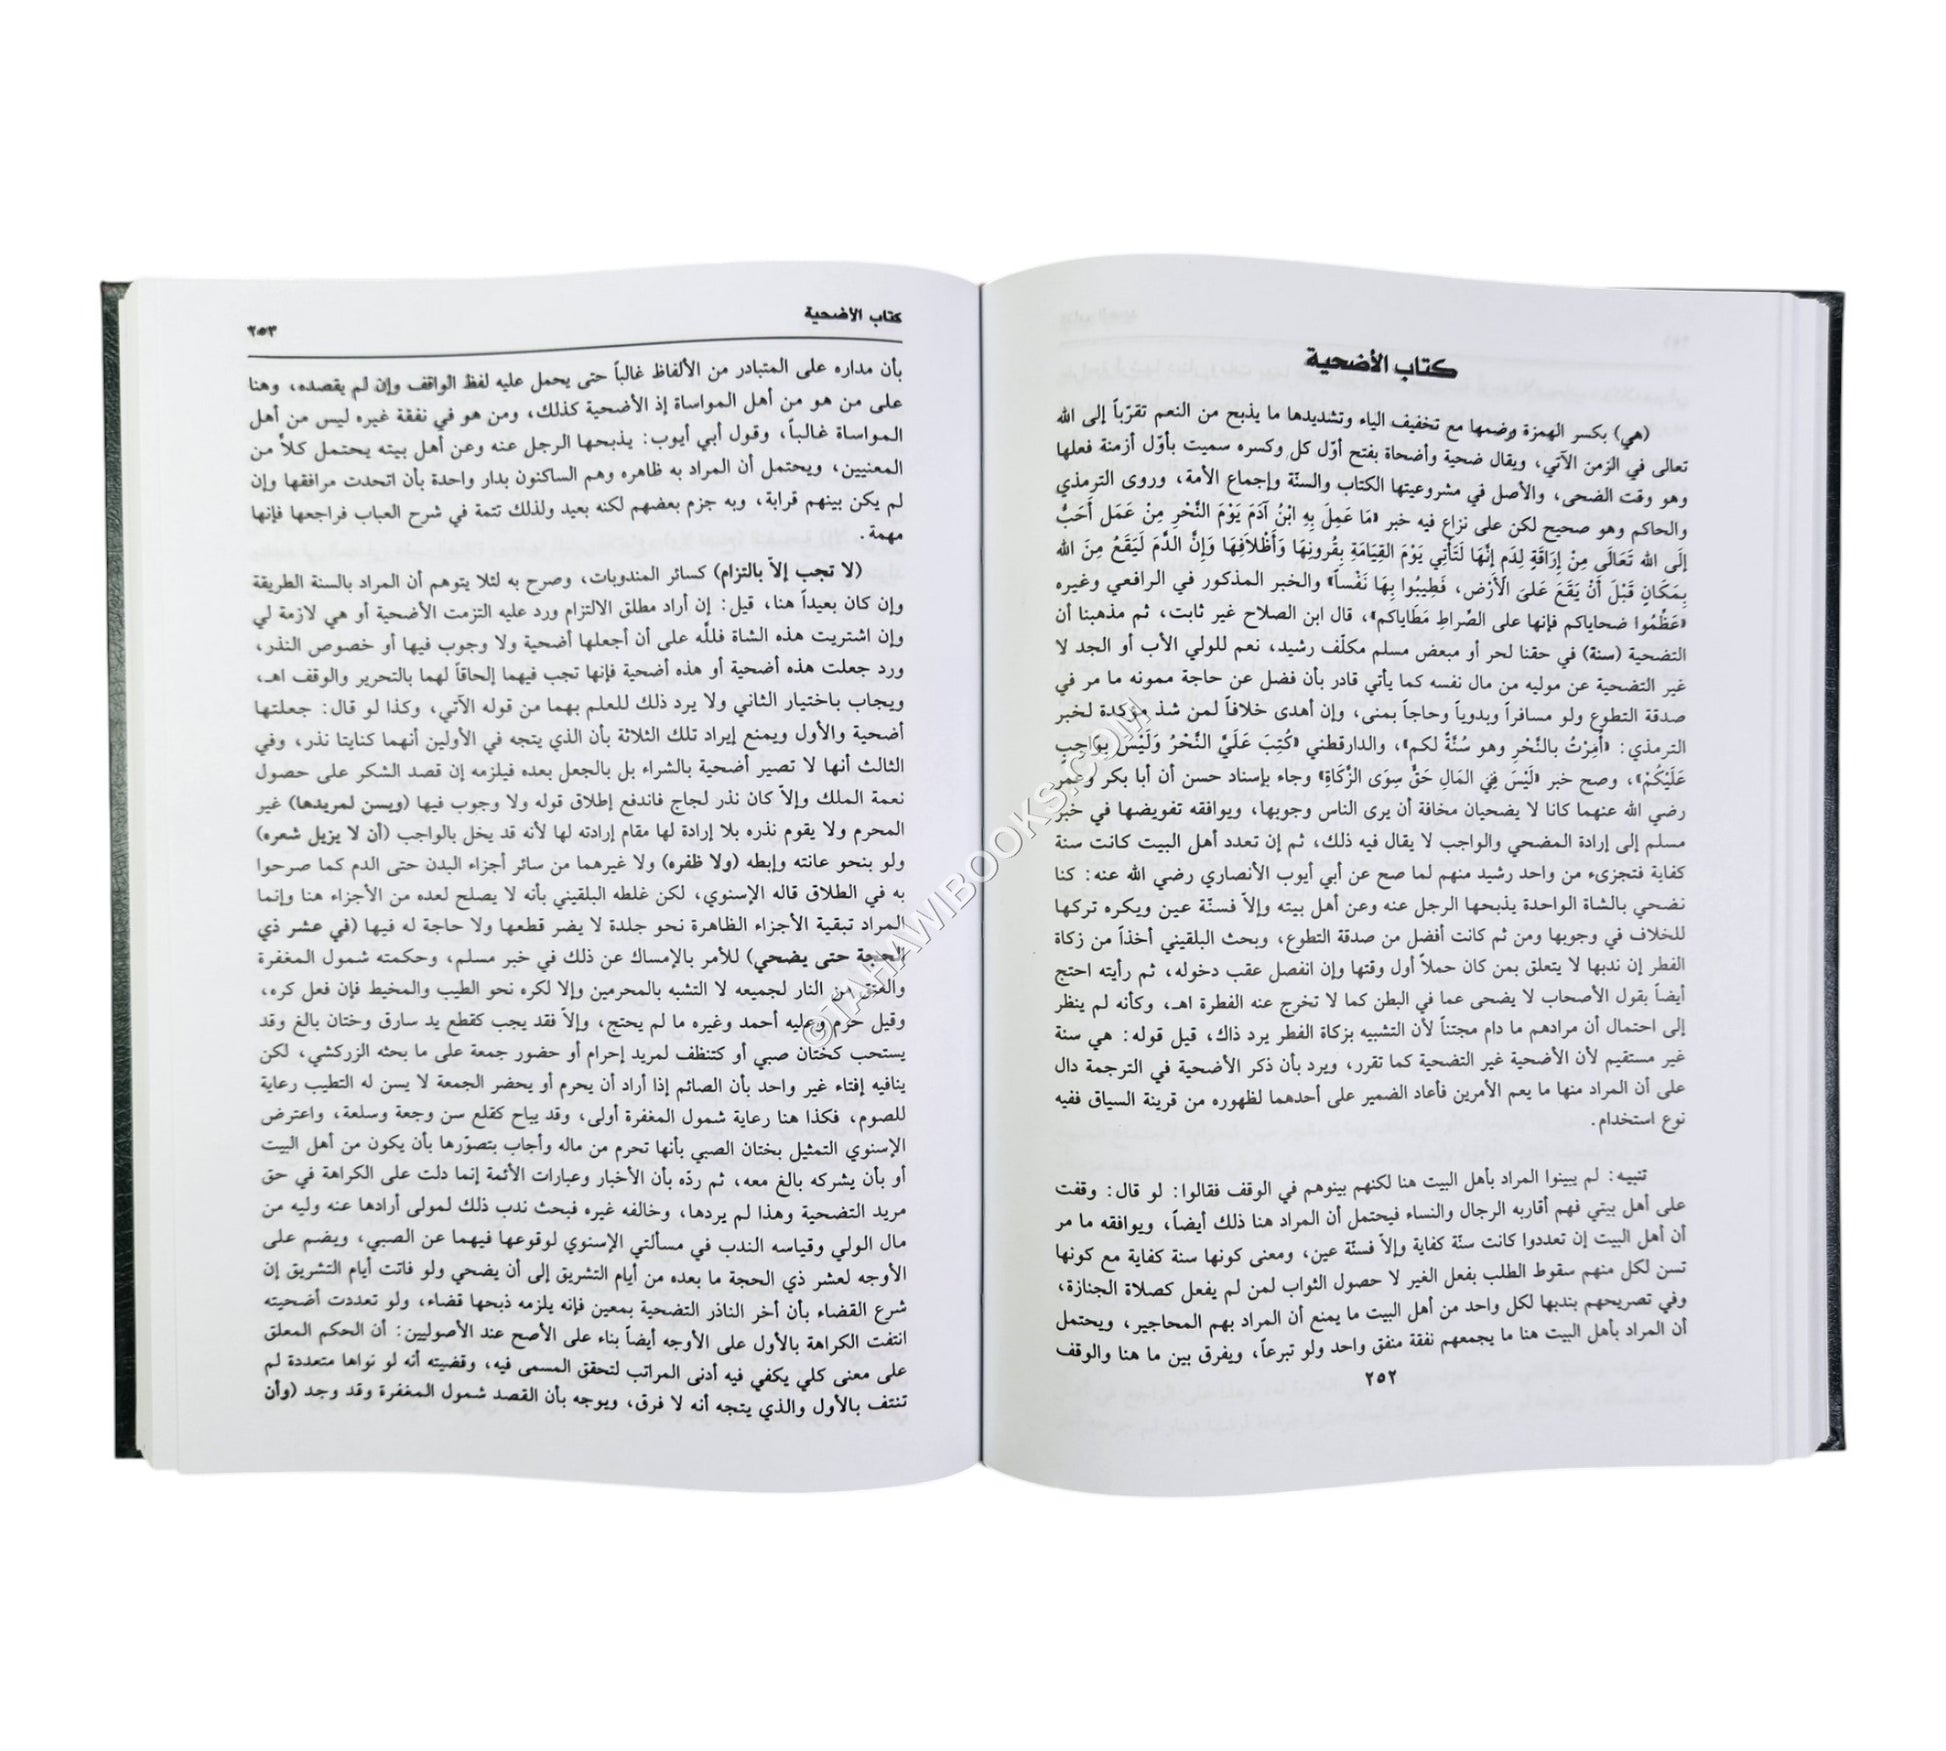 كتاب الأضحية
(هي) بكسر الهمزة وضمها مع تخفيف الياء وتشديدها ما يذبح من النعم تقرّباً إلى الله
تعالى في الزمن الآتي، ويقال ضحية وأضحاة بفتح أوّل كل وكسره سميت بأوّل أزمنة فعلها
وهو وقت الضحى، والأصل في مشروعيتها الكتاب والسنّة وإجماع الأمة، وروى الترمذي
والحاكم وهو صحيح لكن على نزاع فيه خبر «مَا عَمِلَ بِهِ ابْنُ آدَمَ يَوْمَ النَّحْرِ مِنْ عَمَل أَحَبُّ
إلَى الله تَعَالَى مِنْ إرَاقَةِ لِدَم إنَّهَا لَتَأتِي يَوْمَ القِيَامَةِ بِقُرونِهَا وَأَظْلَافِهَا وَإنَّ الدَّمَ لَيَقَعُ مِنَ الله
بِمَكَانٍ قَبْلَ أَنْ يَقَعَ عَلىَ الأَرْض، فَطِيبُوا بِهَا نَفْساً» والخبر المذكور في الرافعي وغيره
«عَظِّمُوا ضحاياكم فإنها على الصِّراطِ مَطَاياكم»، قال ابن الصلاح غير ثابت، ثم مذهبنا أن
التضحية (سنة) في حقنا لحر أو مبعض مسلم مكلّف رشيد، نعم للولي الأب أو الجد لا
غير التضحية عن موليه من مال نفسه كما يأتي قادر بأن فضل عن حاجة ممونه ما مر في
صدقة التطوع ولو مسافراً وبدوياً وحاجاً بمنى، وإن أهدى خلافاً لمن شذ مؤكدة لخبر
الترمذي: «أُمِرْتُ بالنَّحْرِ وهو سُنَّةٌ لكم»، والدارقطني «كُتِبَ عَلَيَّ النَّحْرُ وَلَيْسَ بِوَاجِبٍ
عَلَيْكُمْ»، وصح خبر «لَيْسَ فِي المَالِ حَقٌّ سِوَى الزَّكَاةِ» وجاء بإسناد حسن أن أبا بكر وعمر
رضي الله عنهما كانا لا يضحيان مخافة أن يرى الناس وجوبها، ويوافقه تفويضها في خبر
مسلم إلى إرادة المضحي والواجب لا يقال فيه ذلك، ثم إن تعدد أهل البيت كانت سنة
كفاية فتجزىء من واحد رشيد منهم لما صح عن أبي أيوب الأنصاري رضي الله عنه: كنا
نضحي بالشاة الواحدة يذبحها الرجل عنه وعن أهل بيته وإلاّ فسنّة عين ويكره تركها
للخلاف في وجوبها ومن ثم كانت أفضل من صدقة التطوع، وبحث البلقيني أخذاً من زكاة
الفطر إن ندبها لا يتعلق بمن كان حملاً أول وقتها وإن انفصل عقب دخوله، ثم رأيته احتج
أيضاً بقول الأصحاب لا يضحى عما في البطن كما لا تخرج عنه الفطرة اهـ، وكأنه لم ينظر
إلى احتمال أن مرادهم ما دام مجتناً لأن التشبيه بزكاة الفطر يرد ذاك، قيل قوله: هي سنة
غير مستقيم لأن الأضحية غير التضحية كما تقرر، ويرد بأن ذكر الأضحية في الترجمة دال
على أن المراد منها ما يعم الأمرين فأعاد الضمير على أحدهما لظهوره من قرينة السياق ففيه
نوع استخدام.
تنبيه: لم يبينوا المراد بأهل البيت هنا لكنهم بينوهم في الوقف فقالوا: لو قال: وقفت
على أهل بيتي فهم أقاربه الرجال والنساء فيحتمل أن المراد هنا ذلك أيضاً، ويوافقه ما مر
أن أهل البيت إن تعددوا كانت سنّة كفاية وإلاّ فسنّة عين، ومعنى كونها سنة كفاية مع كونها
تسن لكل منهم سقوط الطلب بفعل الغير لا حصول الثواب لمن لم يفعل كصلاة الجنازة،
وفي تصريحهم بندبها لكل واحد من أهل البيت ما يمنع أن المراد بهم المحاجير، ويحتمل
أن المراد بأهل البيت هنا ما يجمعهم نفقة منفق واحد ولو تبرعاً، ويفرق بين ما هنا والوقف
٢٥٢
كتاب الأضحية ٢٥٣
بأن مداره على المتبادر من الألفاظ غالباً حتى يحمل عليه لفظ الواقف وإن لم يقصده، وهنا
على من هو من أهل المواساة إذ الأضحية كذلك، ومن هو في نفقة غيره ليس من أهل
المواساة غالباً، وقول أبي أيوب: يذبحها الرجل عنه وعن أهل بيته يحتمل كلاً من
المعنيين، ويحتمل أن المراد به ظاهره وهم الساكنون بدار واحدة بأن اتحدت مرافقها وإن
لم يكن بينهم قرابة، وبه جزم بعضهم لكنه بعيد ولذلك تتمة في شرح العباب فراجعها فإنها
مهمة.
(لا تجب إلاّ بالتزام) كسائر المندوبات، وصرح به لئلا يتوهم أن المراد بالسنة الطريقة
وإن كان بعيداً هنا، قيل: إن أراد مطلق الالتزام ورد عليه التزمت الأضحية أو هي لازمة لي
وإن اشتريت هذه الشاة فللّه على أن أجعلها أضحية ولا وجوب فيها أو خصوص النذر،
ورد جعلت هذه أضحية أو هذه أضحية فإنها تجب فيهما إلحاقاً لهما بالتحرير والوقف اهـ،
ويجاب باختيار الثاني ولا يرد ذلك للعلم بهما من قوله الآتي، وكذا لو قال: جعلتها
أضحية والأول ويمنع إيراد تلك الثلاثة بأن الذي يتجه في الأولين أنهما كنايتا نذر، وفي
الثالث أنها لا تصير أضحية بالشراء بل بالجعل بعده فيلزمه إن قصد الشكر على حصول
نعمة الملك وإلاّ كان نذر لجاج فاندفع إطلاق قوله ولا وجوب فيها (ويسن لمريدها) غير
المحرم ولا يقوم نذره بلا إرادة لها مقام إرادته لها لأنه قد يخل بالواجب (أن لا يزيل شعره)
ولو بنحو عانته وإبطه (ولا ظفره) ولا غيرهما من سائر أجزاء البدن حتى الدم كما صرحوا
به في الطلاق قاله الإسنوي، لكن غلطه البلقيني بأنه لا يصلح لعده من الأجزاء هنا وإنما
المراد تبقية الأجزاء الظاهرة نحو جلدة لا يضر قطعها ولا حاجة له فيها (في عشر ذي
الحجة حتى يضحي) للأمر بالإمساك عن ذلك في خبر مسلم، وحكمته شمول المغفرة
والعتق من النار لجميعه لا التشبه بالمحرمين وإلا لكره نحو الطيب والمخيط فإن فعل كره،
وقيل حرم وعليه أحمد وغيره ما لم يحتج، وإلاّ فقد يجب كقطع يد سارق وختان بالغ وقد
يستحب كختان صبي أو كتنظف لمريد إحرام أو حضور جمعة على ما بحثه الزركشي، لكن
ينافيه إفتاء غير واحد بأن الصائم إذا أراد أن يحرم أو يحضر الجمعة لا يسن له التطيب رعاية
للصوم، فكذا هنا رعاية شمول المغفرة أولى، وقد يباح كقلع سن وجعة وسلعة، واعترض
الإسنوي التمثيل بختان الصبي بأنها تحرم من ماله وأجاب بتصوّرها بأن يكون من أهل البيت
أو بأن يشركه بالغ معه، ثم ردّه بأن الأخبار وعبارات الأئمة إنما دلت على الكراهة في حق
مريد التضحية وهذا لم يردها، وخالفه غيره فبحث ندب ذلك لمولى أرادها عنه وليه من
مال الولي وقياسه الندب في مسألتي الإسنوي لوقوعها فيهما عن الصبي، ويضم على
الأوجه لعشر ذي الحجة ما بعده من أيام التشريق إلى أن يضحي ولو فاتت أيام التشريق إن
شرع القضاء بأن أخر الناذر التضحية بمعين فإنه يلزمه ذبحها قضاء، ولو تعددت أضحيته
انتفت الكراهة بالأول على الأوجه أيضاً بناء على الأصح عند الأصوليين: أن الحكم المعلق
على معنى كلي يكفي فيه أدنى المراتب لتحقق المسمى فيه، وقضيته أنه لو نواها متعددة لم
تنتف بالأول والذي يتجه أنه لا فرق، ويوجه بأن القصد شمول المغفرة وقد وجد (وأن
©TAHAWIBOOKS.COM